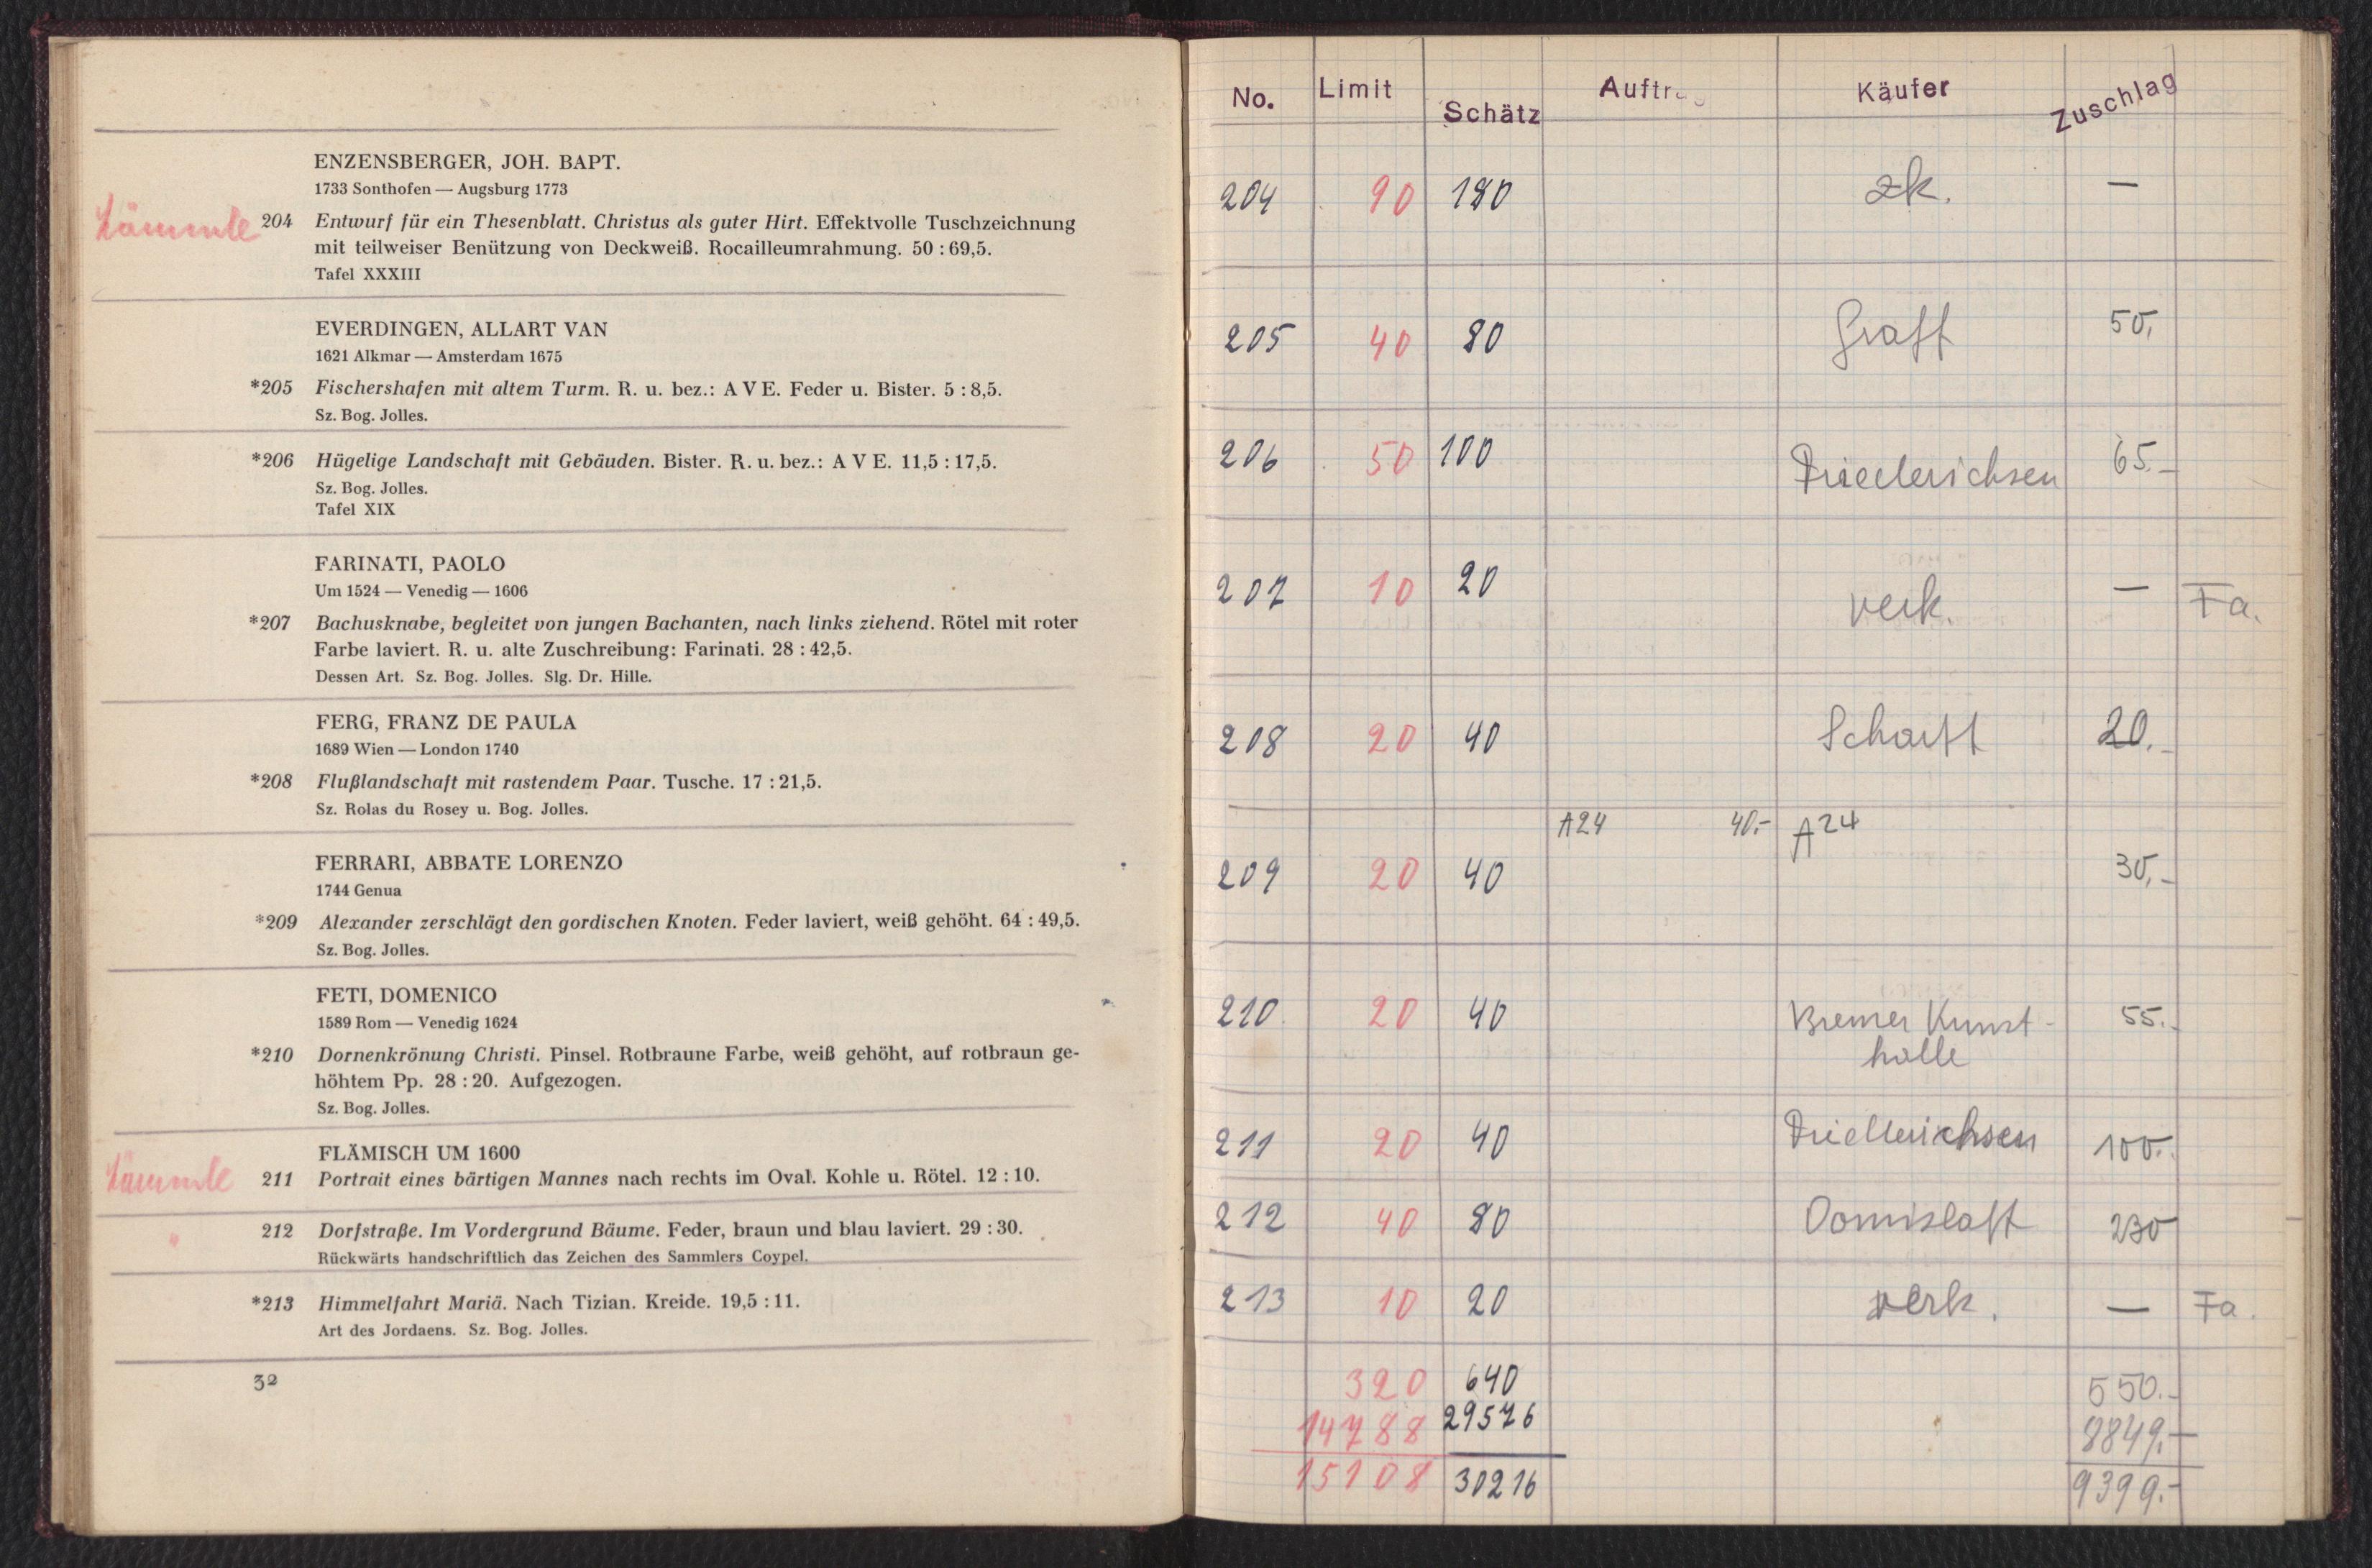 ENZENSBERGER, JOH. BAPT.
1733 Sonthofen — Augsburg 1773
Lämmle 204 Entwurf für ein Thesenblatt. Christus als guter Hirt. Effektvolle Tuschzeichnung
mit teilweiser Benützung von Deckweiß. Rocailleumrahmung. 50 : 69,5.
Tafel XXXIII
EVERDINGEN, ALLART VAN
1621 Alkmar — Amsterdam 1675
*205 Fischershafen mit altem Turm. R. u. bez.: A V E. Feder u. Bister. 5 : 8,5.
Sz. Bog. Jolles.
*206 Hügelige Landschaft mit Gebäuden. Bister. R. u. bez.: A V E. 11,5 : 17,5.
Sz. Bog. Jolles.
Tafel XIX
FARINATI, PAOLO
Um 1524 — Venedig — 1606
*207 Bachusknabe, begleitet von jungen Bachanten, nach links ziehend. Rötel mit roter
Farbe laviert. R. u. alte Zuschreibung: Farinati. 28 : 42,5.
Dessen Art. Sz. Bog. Jolles. Slg. Dr. Hille.
FERG, FRANZ DE PAULA
1689 Wien — London 1740
*208 Flußlandschaft mit rastendem Paar. Tusche. 17 : 21,5.
Sz. Rolas du Rosey u. Bog. Jolles.
FERRARI, ABBATE LORENZO
1744 Genua
*209 Alexander zerschlägt den gordischen Knoten. Feder laviert, weiß gehöht. 64 : 49,5.
Sz. Bog. Jolles.
FETI, DOMENICO
1589 Rom — Venedig 1624
*210 Dornenkrönung Christi. Pinsel. Rotbraune Farbe, weiß gehöht, auf rotbraun ge-
höhtem Pp. 28 : 20. Aufgezogen.
Sz. Bog. Jolles.
FLÄMISCH UM 1600
Lämmle 211 Portrait eines bärtigen Mannes nach rechts im Oval. Kohle u. Rötel. 12 : 10.
" 212 Dorfstraße. Im Vordergrund Bäume. Feder, braun und blau laviert. 29 : 30.
Rückwärts handschriftlich das Zeichen des Sammlers Coypel.
*213 Himmelfahrt Mariä. Nach Tizian. Kreide. 19,5 : 11.
Art des Jordaens. Sz. Bog. Jolles.
32
No. Limit Schätz Auftrag Käufer Zuschlag
204 90 180 zk. —
205 40 80 Graff 50,
206 50 100 Friederichsen 65.-
207 10 20 verk. — Fa.
208 20 40 Scharff 20.-
A24 40.- A24
209 20 40 30,-
210 20 40 Bremer Kunst- 55.-
halle
211 20 40 Friederichsen 100.-
212 40 80 Domizlaff 230
213 10 20 verk. — Fa.
320 640 550.-
14788 29576 8849.-
15108 30216 9399.-